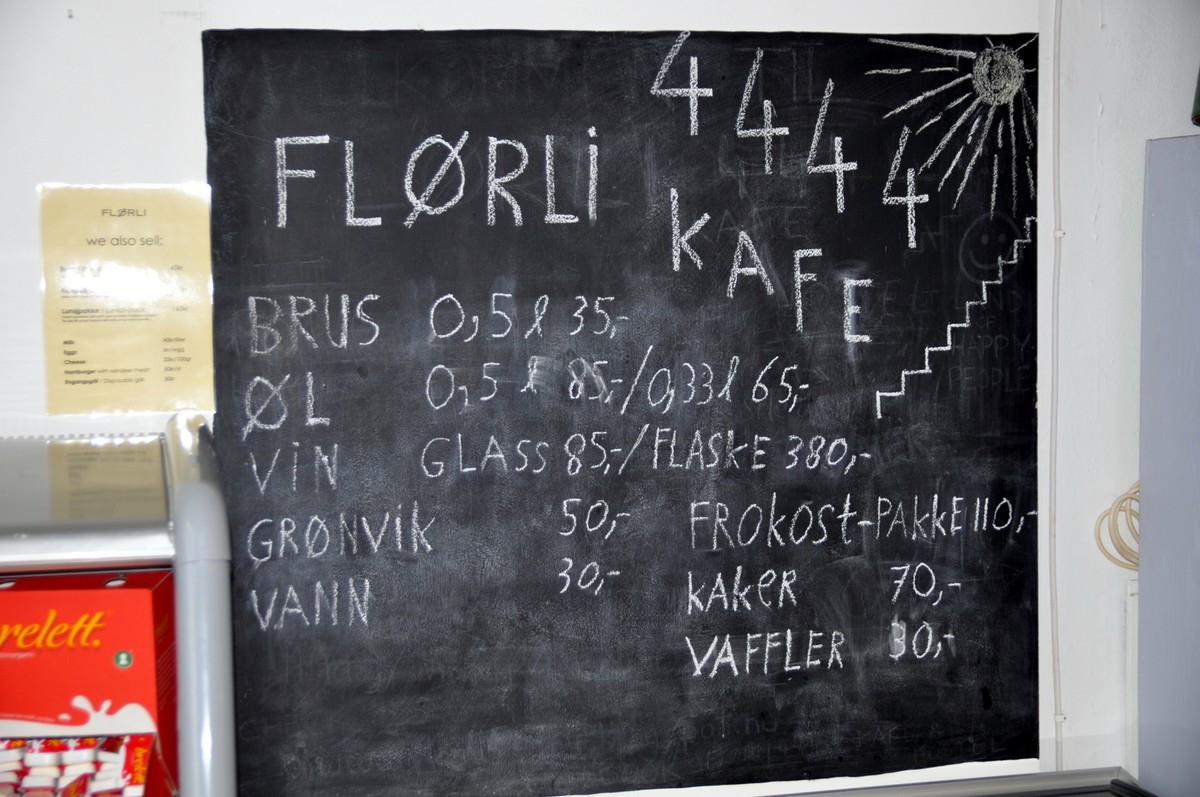 FLØRLi
4 4 4 4
KAFE
BRUS 0,5 l 35,-
ØL 0,5 l 85,-/0,33 l 65,-
ViN GLASS 85,-/FLASKE 380,-
GRØNViK 50,-
VANN 30,-
FROKOST-PAKKE 110,-
KAKER 70,-
VAFFLER 30,-
FLØRLI
we also sell:
Lunsjpakke /
Milk
Eggs:
Cheese:
Hamburger with reindeer meat:
Engangsgrill / Disposable grill:
relett.